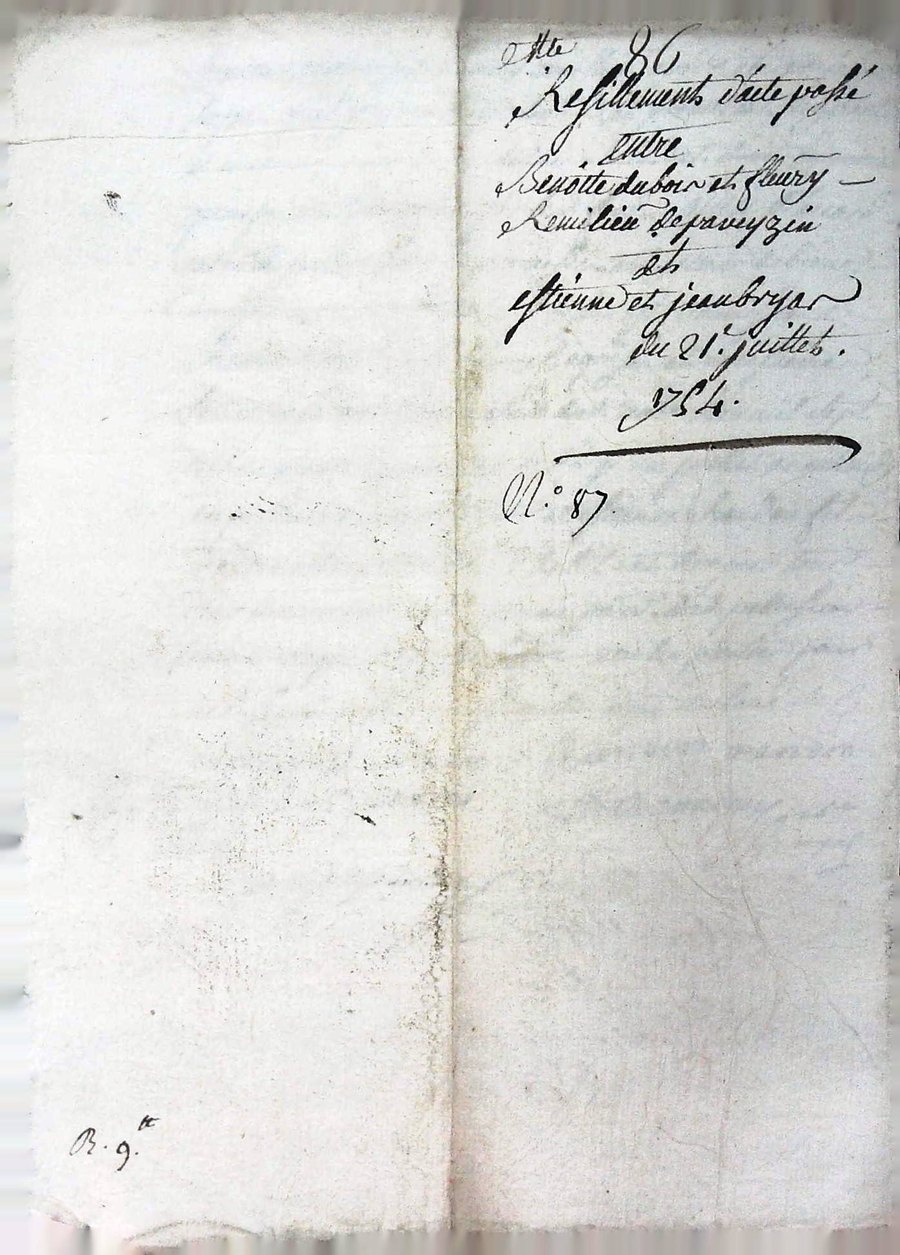 86
Resillement d'acte passé
entre
Benoitte dubois et fleury
Remilieu de paveyzin
et
estienne et jean bryas
du 21e. juillet.
1754.
N.° 87.
R. 9.tt